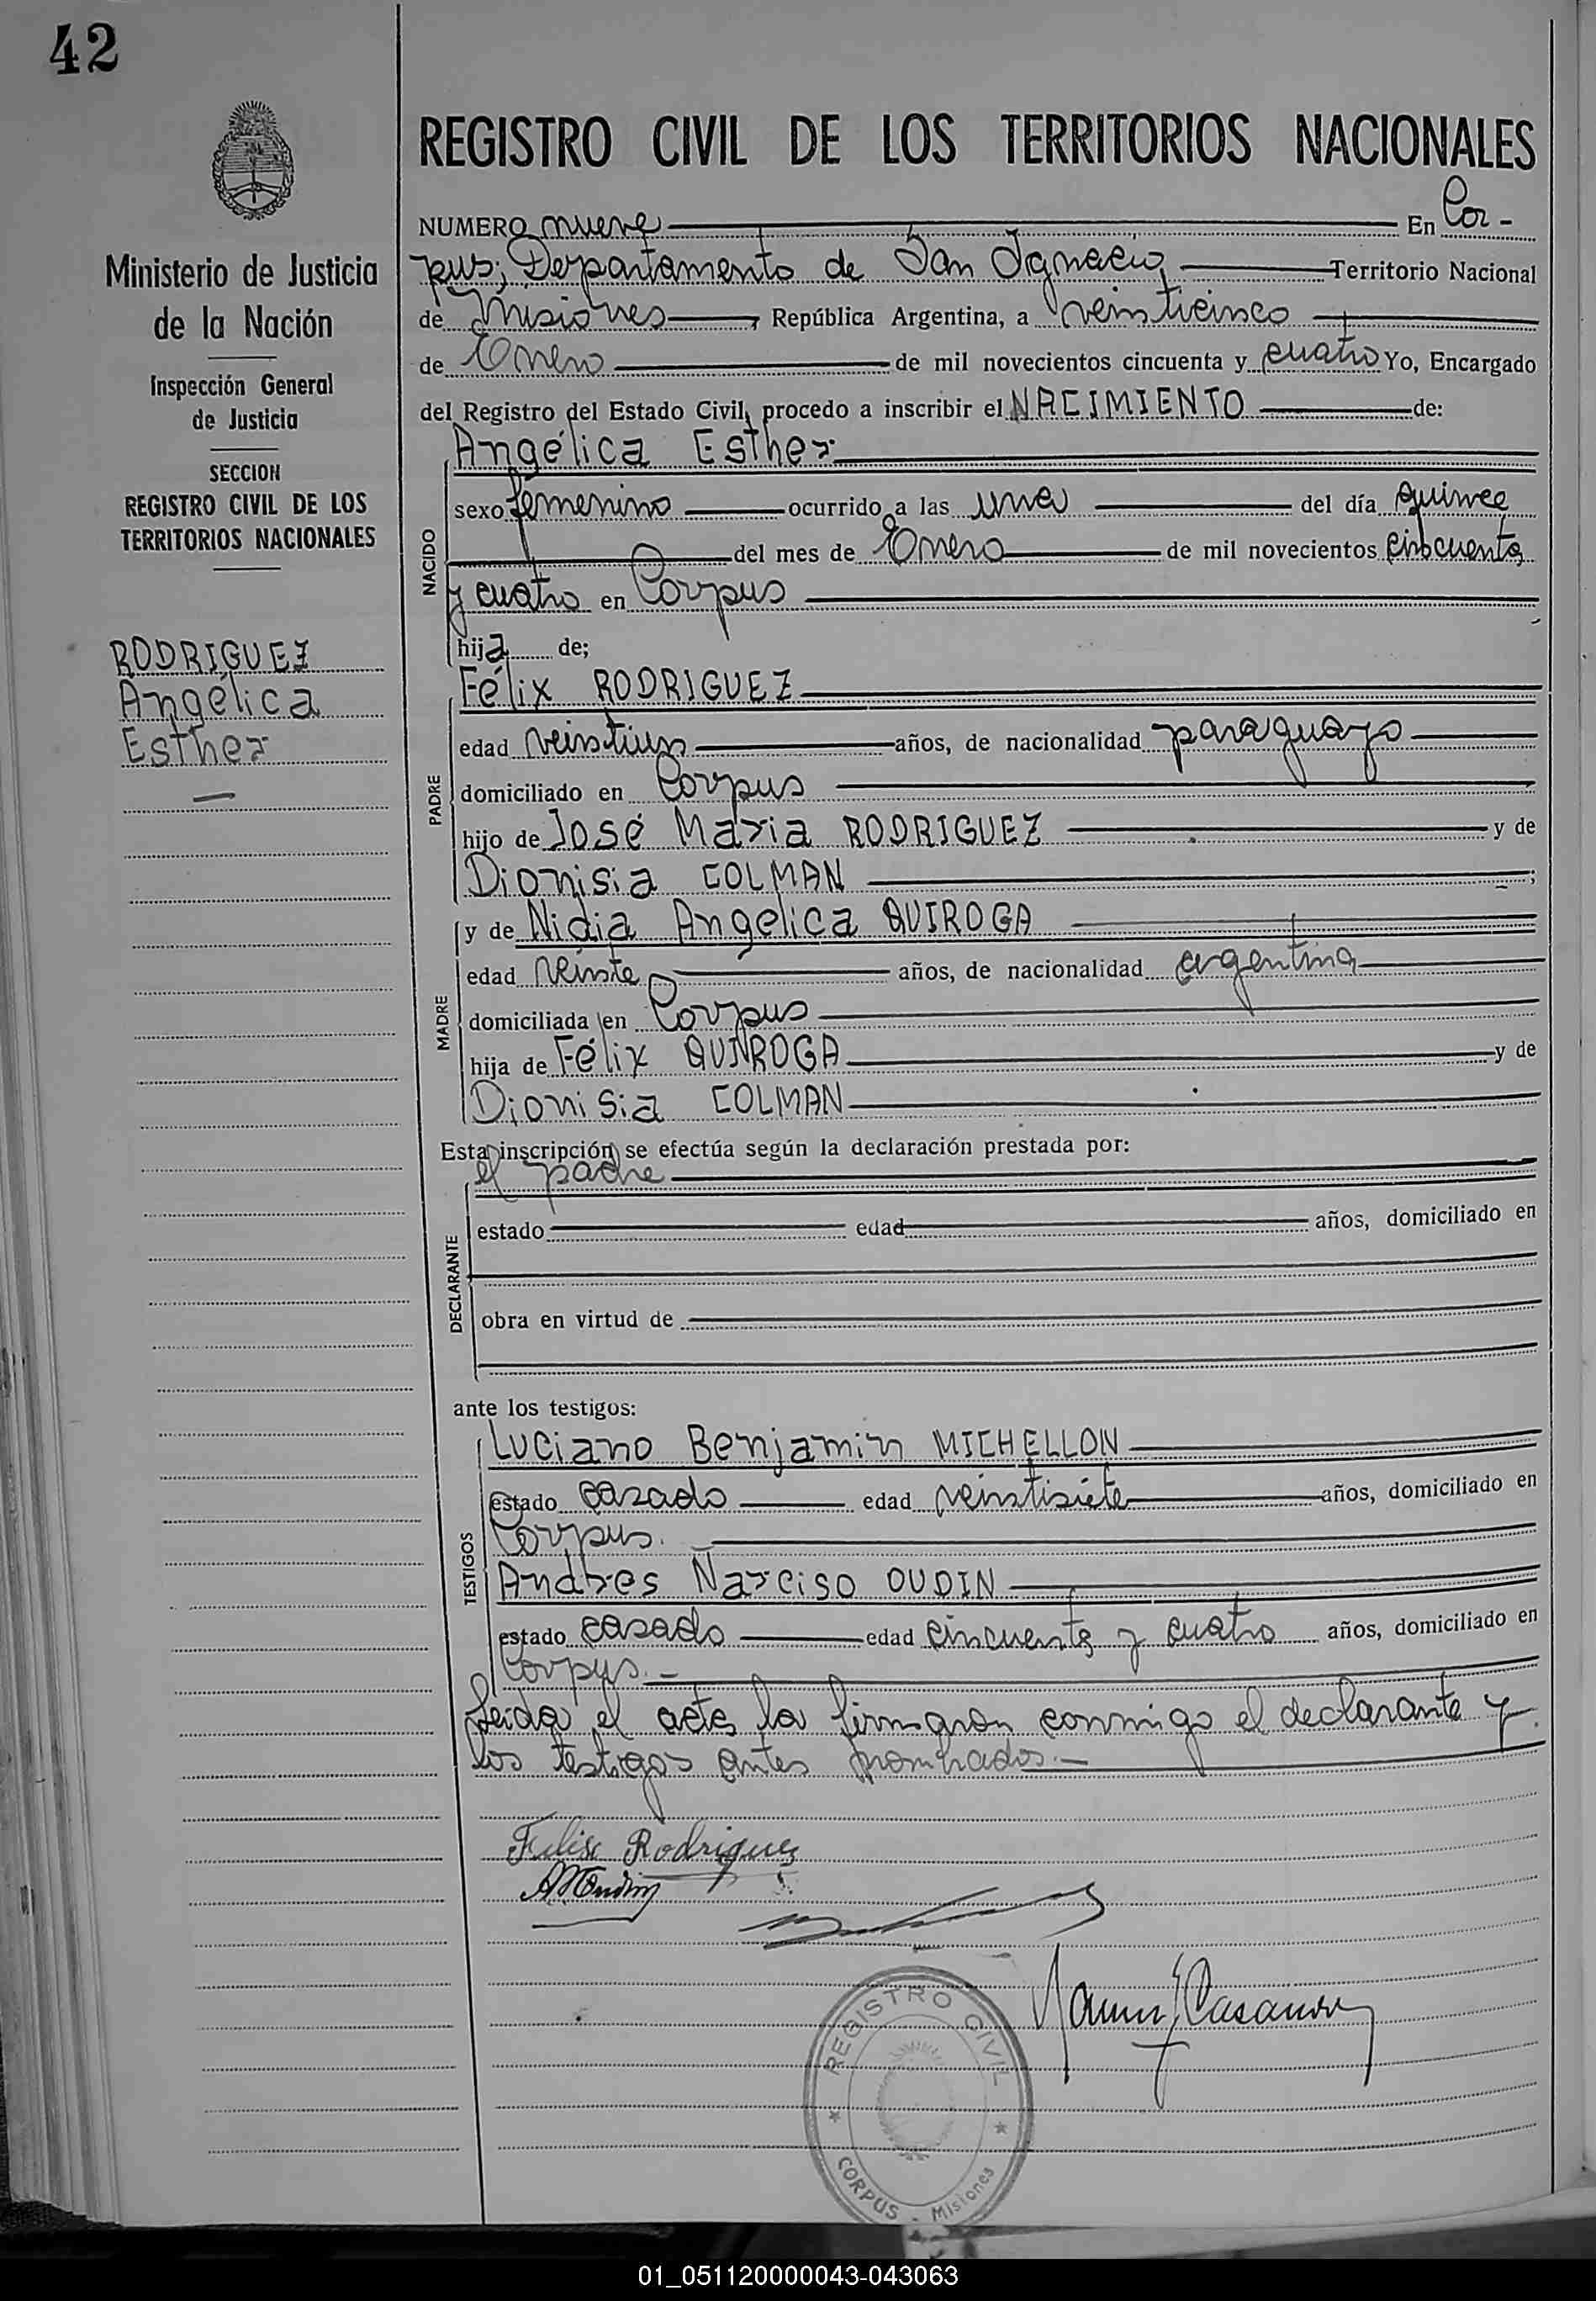 42
REGISTRO CIVIL DE LOS TERRITORIOS NACIONALES
Ministerio de Justicia
de la Nación
Inspección General
de Justicia
SECCION
REGISTRO CIVIL DE LOS
TERRITORIOS NACIONALES
RODRIGUEZ
Angélica
Esther
NUMERO nueve En Cor-
pus; Departamento de San Ignacio, Territorio Nacional
de Misiones, República Argentina, a veinticinco
de Enero de mil novecientos cincuenta y cuatro Yo, Encargado
del Registro del Estado Civil, procedo a inscribir el NACIMIENTO de:
NACIDO
Angélica Esther
sexo femenino ocurrido a las una del día quince
del mes de Enero de mil novecientos cincuenta
y cuatro en Corpus
hija de;
PADRE
Félix RODRIGUEZ
edad veintiun años, de nacionalidad paraguayo
domiciliado en Corpus
hijo de José Maria RODRIGUEZ y de
Dionisia COLMAN ;
MADRE
y de Nidia Angélica QUIROGA
edad veinte años, de nacionalidad argentina
domiciliada en Corpus
hija de Félix QUIROGA y de
Dionisia COLMAN
Esta inscripción se efectúa según la declaración prestada por:
DECLARANTE
el padre
estado edad años, domiciliado en
obra en virtud de
ante los testigos:
TESTIGOS
Luciano Benjamin MICHELLON
estado casado edad veintisiete años, domiciliado en
Corpus.
Andres Narciso OUDIN
estado casado edad cincuenta y cuatro años, domiciliado en
Corpus.-
Leida el acta la firmaron conmigo el declarante y
los testigos antes nombrados.-
Felix Rodriguez
REGISTRO CIVIL
CORPUS - Misiones
01_051120000043-043063